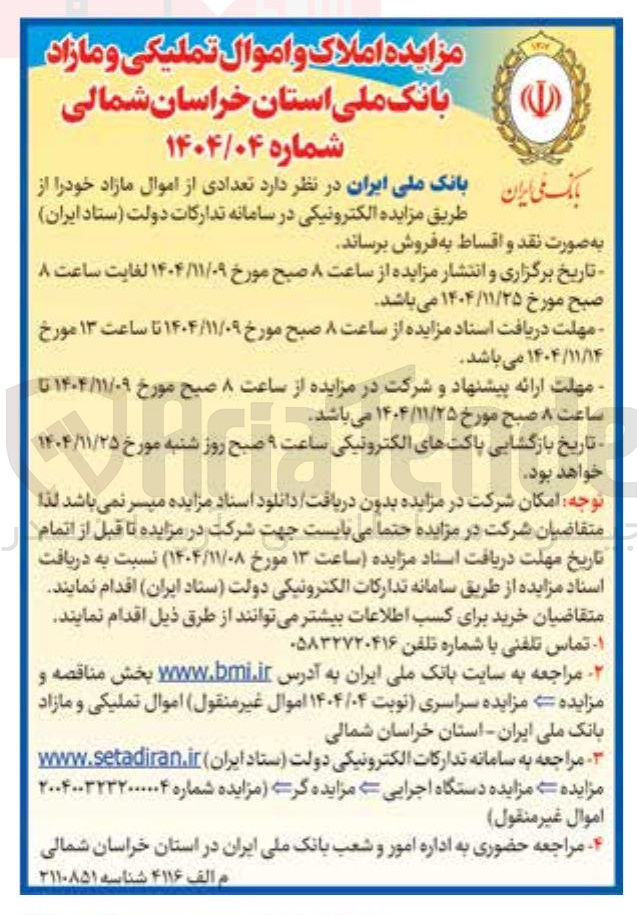 مزایده املاک و اموال تملیکی و مازاد
بانک ملی استان خراسان شمالی
شماره ۱۴۰۴/۰۴
بانک ملی ایران
بانک ملی ایران در نظر دارد تعدادی از اموال مازاد خودرا از
طریق مزایده الکترونیکی در سامانه تدارکات دولت (ستاد ایران)
به‌صورت نقد و اقساط به‌فروش برساند.
- تاریخ برگزاری و انتشار مزایده از ساعت ۸ صبح مورخ ۱۴۰۴/۱۱/۰۹ لغایت ساعت ۸
صبح مورخ ۱۴۰۴/۱۱/۲۵ می‌باشد.
- مهلت دریافت اسناد مزایده از ساعت ۸ صبح مورخ ۱۴۰۴/۱۱/۰۹ تا ساعت ۱۳ مورخ
۱۴۰۴/۱۱/۱۴ می‌باشد.
- مهلت ارائه پیشنهاد و شرکت در مزایده از ساعت ۸ صبح مورخ ۱۴۰۴/۱۱/۰۹ تا
ساعت ۸ صبح مورخ ۱۴۰۴/۱۱/۲۵ می‌باشد.
- تاریخ بازگشایی پاکت‌های الکترونیکی ساعت ۹ صبح روز شنبه مورخ ۱۴۰۴/۱۱/۲۵
خواهد بود.
توجه: امکان شرکت در مزایده بدون دریافت/دانلود اسناد مزایده میسر نمی‌باشد لذا
متقاضیان شرکت در مزایده حتماً می‌بایست جهت شرکت در مزایده تا قبل از اتمام
تاریخ مهلت دریافت اسناد مزایده (ساعت ۱۳ مورخ ۱۴۰۴/۱۱/۰۸) نسبت به دریافت
اسناد مزایده از طریق سامانه تدارکات الکترونیکی دولت (ستاد ایران) اقدام نمایند.
متقاضیان خرید برای کسب اطلاعات بیشتر می‌توانند از طرق ذیل اقدام نمایند.
۱- تماس تلفنی با شماره تلفن ۰۵۸۳۲۷۲۰۴۱۶
۲- مراجعه به سایت بانک ملی ایران به آدرس www.bmi.ir بخش مناقصه و
مزایده ⇐ مزایده سراسری (نوبت ۱۴۰۴/۰۴ اموال غیرمنقول) اموال تملیکی و مازاد
بانک ملی ایران - استان خراسان شمالی
۳- مراجعه به سامانه تدارکات الکترونیکی دولت (ستاد ایران) www.setadiran.ir
مزایده ⇐ مزایده دستگاه اجرایی ⇐ مزایده گر ⇐ (مزایده شماره ۲۰۰۴۰۰۳۲۳۲۰۰۰۰۰۴
اموال غیرمنقول)
۴- مراجعه حضوری به اداره امور و شعب بانک ملی ایران در استان خراسان شمالی
م الف ۴۱۱۶ شناسه ۲۱۱۰۸۵۱
AriaTender